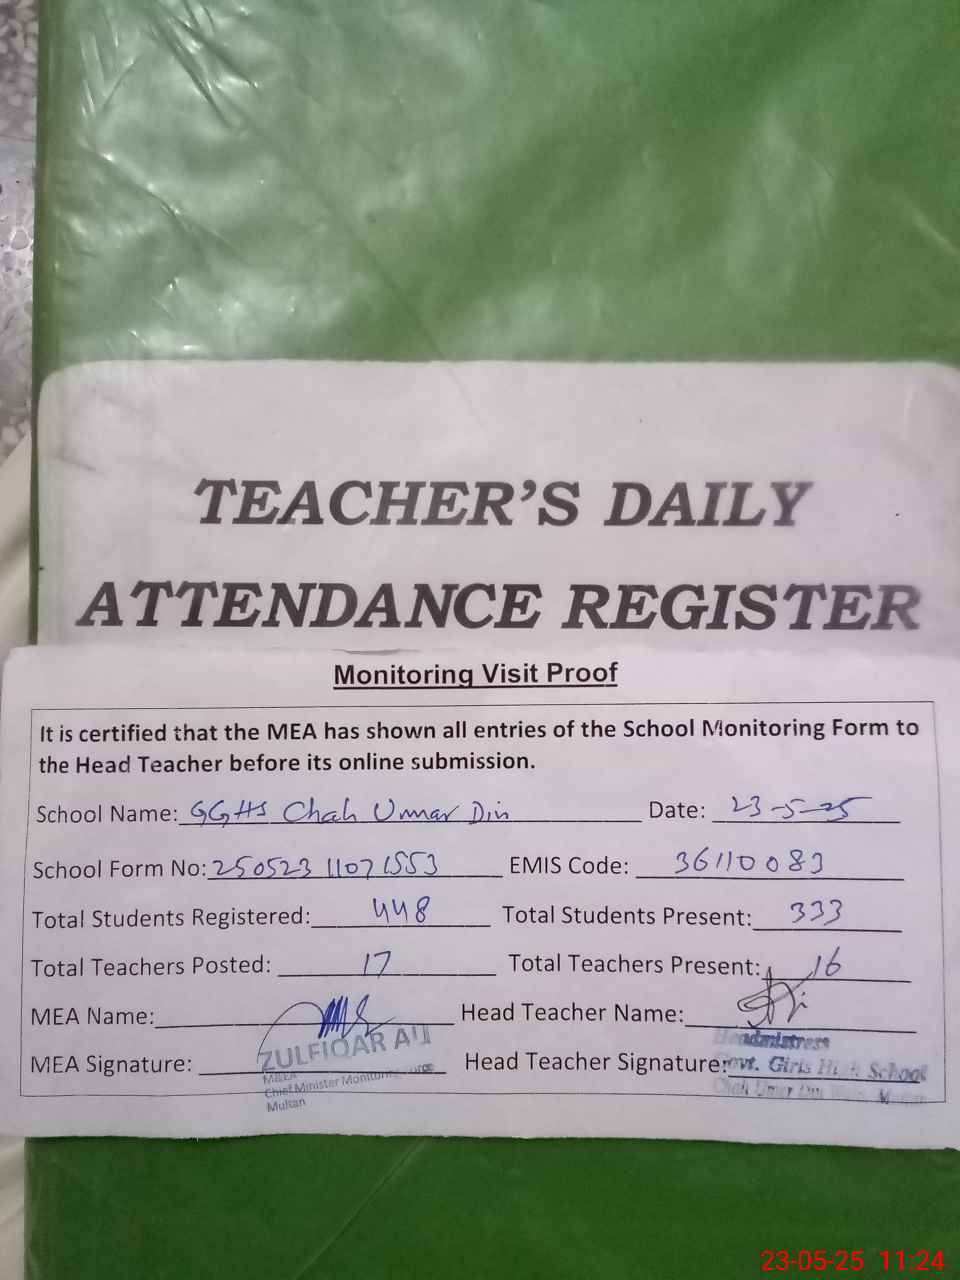 TEACHER'S DAILY
ATTENDANCE REGISTER
Monitoring Visit Proof
It is certified that the MEA has shown all entries of the School Monitoring Form to
the Head Teacher before its online submission.
School Name: GGHS Chah Umar Din Date: 23-5-25
School Form No: 250523 11071553 EMIS Code: 36110083
Total Students Registered: 448 Total Students Present: 333
Total Teachers Posted: 17 Total Teachers Present: 16
MEA Name: Head Teacher Name:
ZULFIQAR ALI Headmistress
MEA Signature: Head Teacher Signature: Govt. Girls High School
Chief Minister Monitoring Chah Umar Din
Multan
23-05-25 11:24